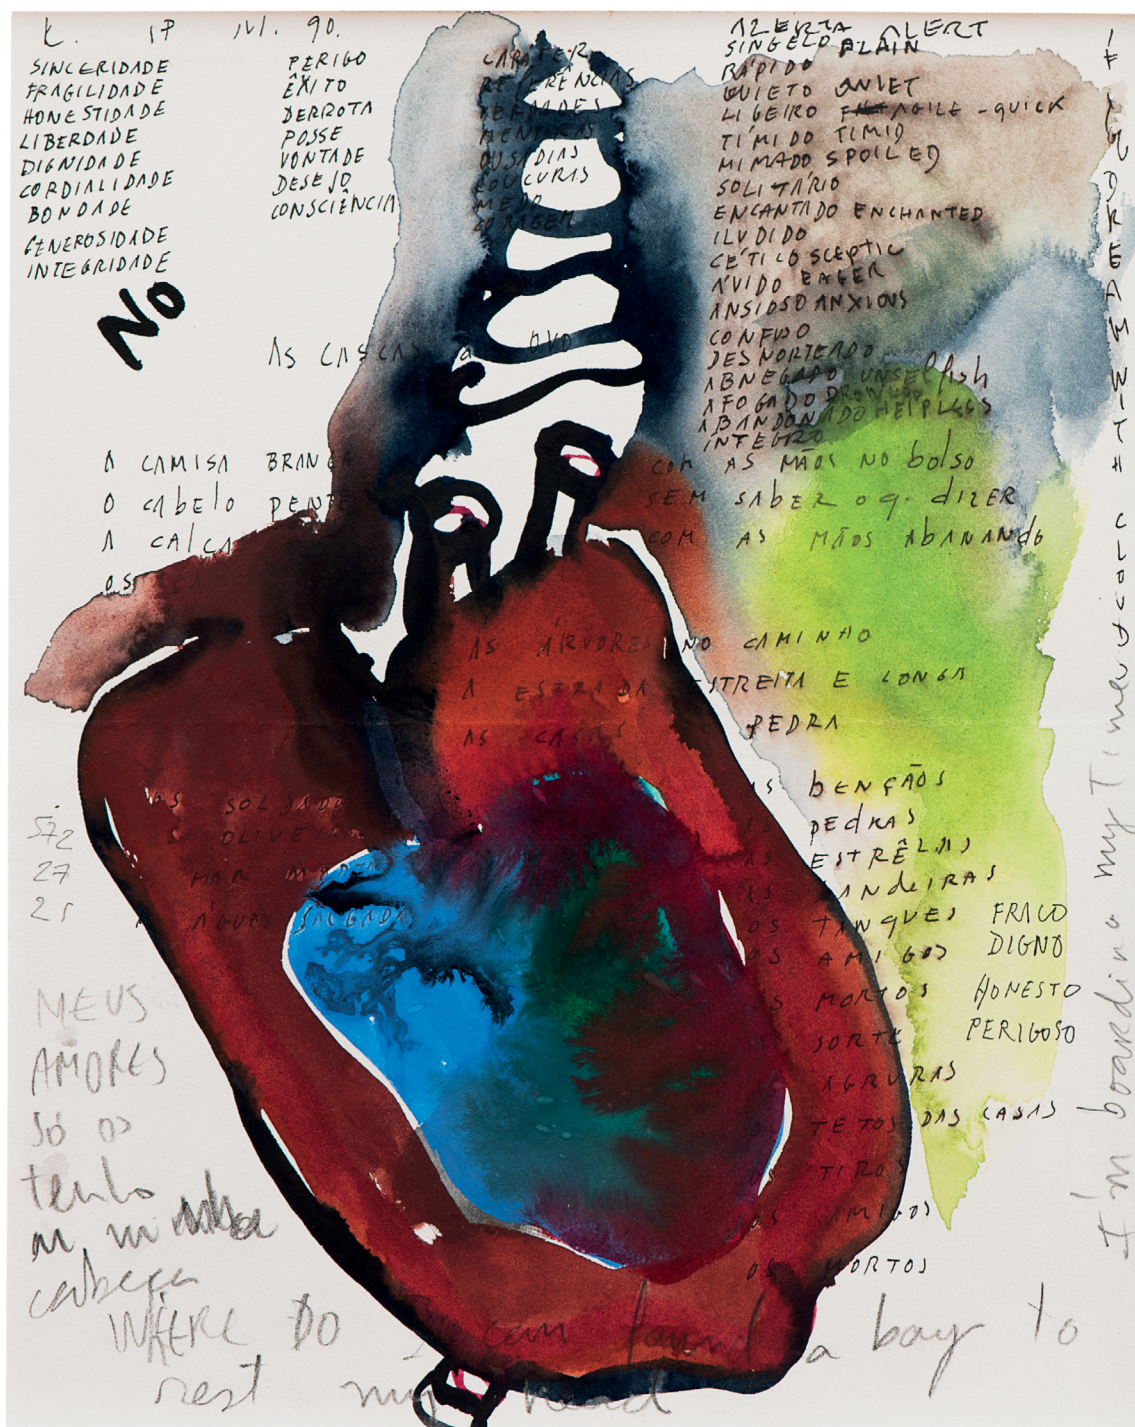 K. 17 IVI. 90.
SINCERIDADE
FRAGILIDADE
HONESTIDADE
LIBERDADE
DIGNIDADE
CORDIALIDADE
BONDADE
GENEROSIDADE
INTEGRIDADE
NO
PERIGO
ÊXITO
DERROTA
POSSE
VONTADE
DESEJO
CONSCIÊNCIA
CARATER
REFERÊNCIAS
VERDADES
MENTIRAS
OUSADIAS
LOUCURAS
MEDO
CORAGEM
ALERTA ALERT
SINGELO PLAIN
RÁPIDO
QUIETO QUIET
LIGEIRO FRAGILE - QUICK
TÍMIDO TIMID
MIMADO SPOILED
SOLITÁRIO
ENCANTADO ENCHANTED
ILUDIDO
CÉTICO SCEPTIC
ÁVIDO EAGER
ANSIOSO ANXIOUS
CONFUSO
DESNORTEADO
ABNEGADO UNSELfish
AFOGADO DROWNED
ABANDONADO HELPLESS
INTEGRO
AS CASCAS OVO
A CAMISA BRANCA
O CAbelo
A CALÇA
OS
COM AS MÃOS NO bolso
SEM SAbER o q. dIZER
COM AS MÃOS AbANANdo
AS ÁRVORES NO CAMINHO
A ESTRADA ESTREITA E LONGA
AS CASAS PEDRA
AS SOLDADO
OLIVEIRA
MAR
A ÁGUA SALGADA
572
27
25
AS bENÇÃOS
AS PEdRAS
AS ESTRÊLAS
AS bANdeIRAS
OS TANQUES
OS AMIGOS
OS MORTOS
A SORTE
AGRURAS
OS TETOS DAS CASAS
OS TIROS
OS AMIGOS
OS MORTOS
FRACO
DIGNO
HONESTO
PERIGOSO
MEUS
AMORES
Só os
tenho
na minha
cabeça
WHERE DO I can found a bay to
rest my head
IF I
DREAM WITH
I'm boarding my Time